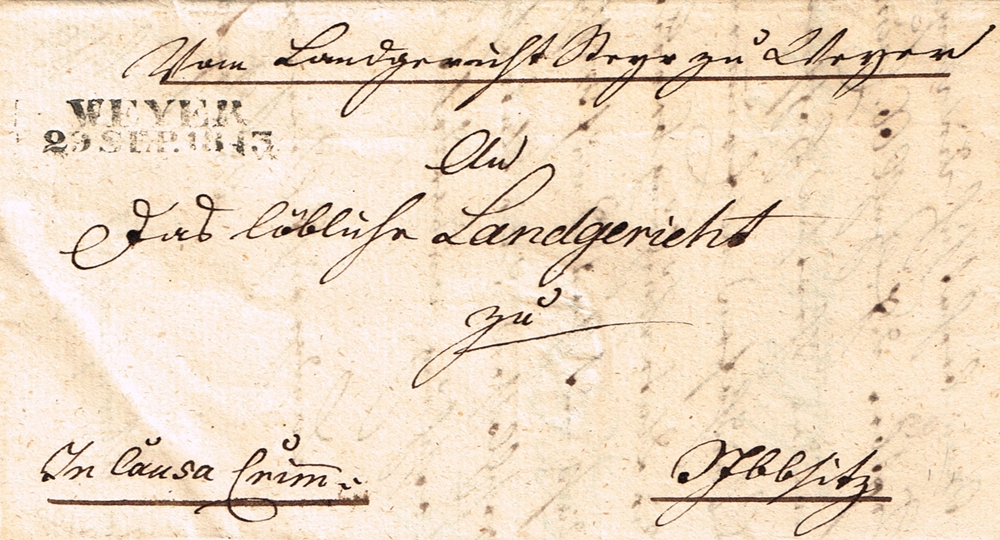 Vom Landgericht Steyr zu Weyer
WEYER
29 SEP. 1843
An
Das löbliche Landgericht
zu
In Causa Crim:
Ybbsitz